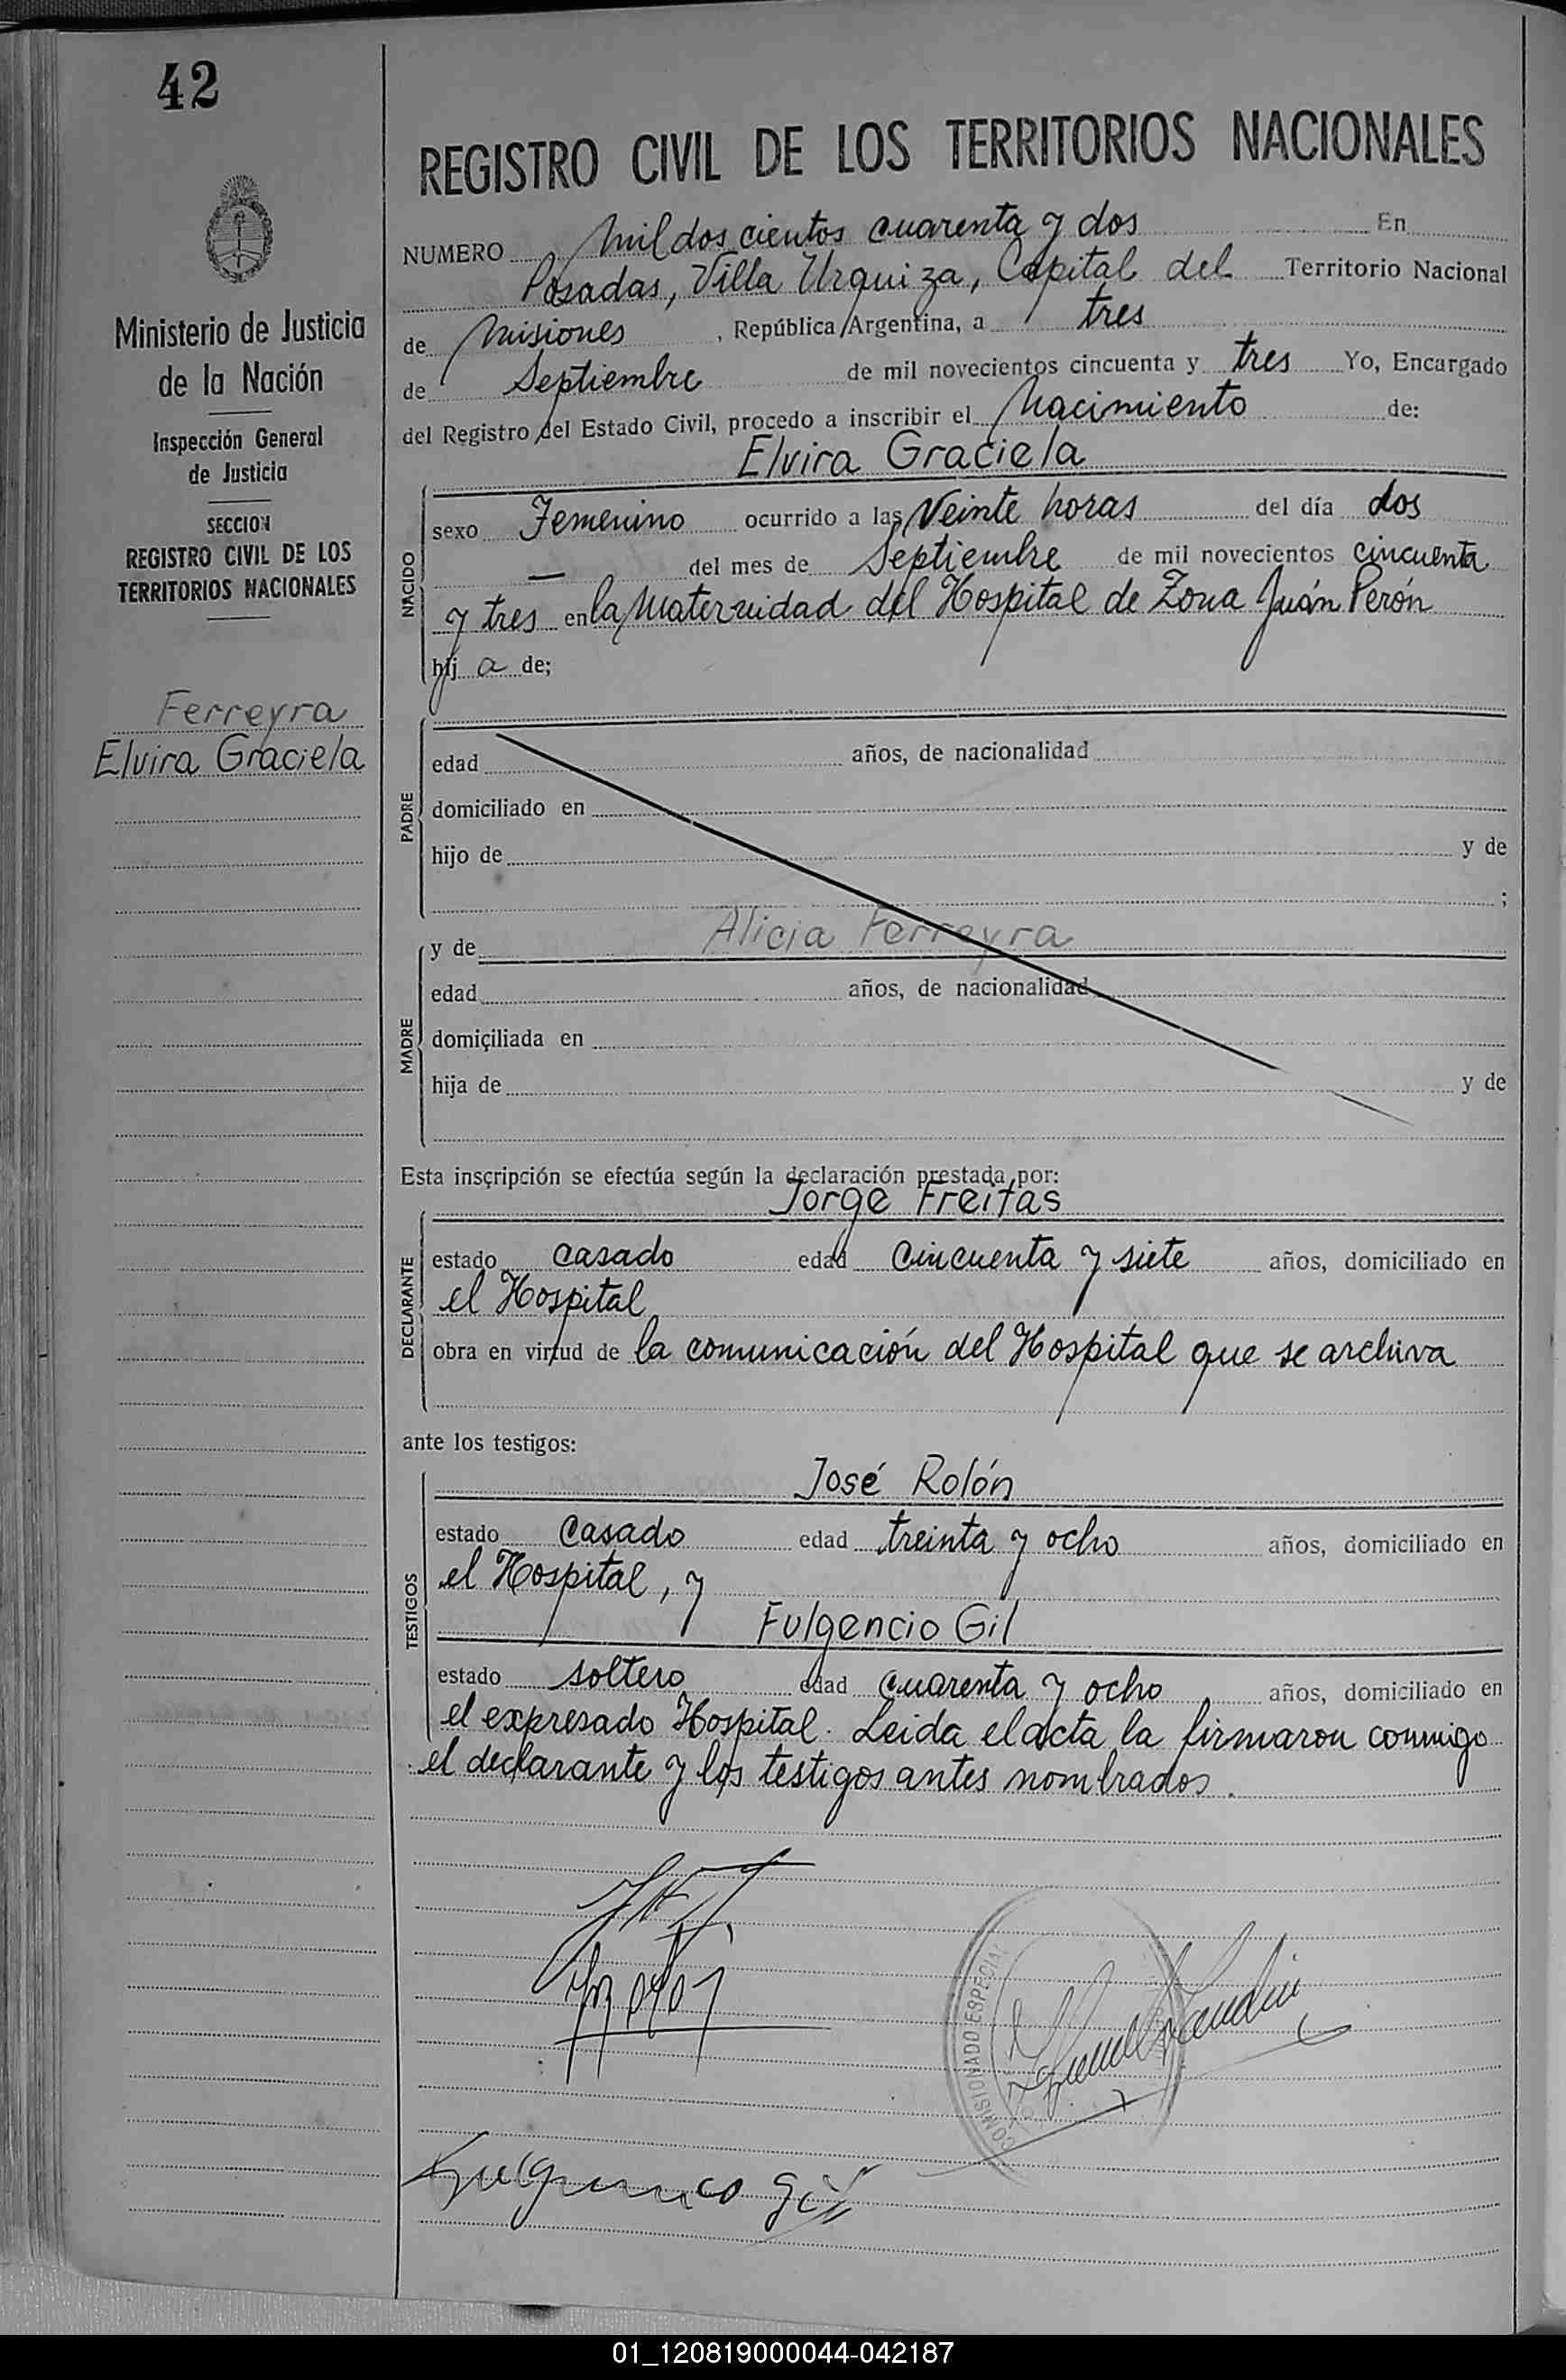 42
Ministerio de Justicia
de la Nación
Inspección General
de Justicia
SECCION
REGISTRO CIVIL DE LOS
TERRITORIOS NACIONALES
Ferreyra
Elvira Graciela
REGISTRO CIVIL DE LOS TERRITORIOS NACIONALES
NUMERO Mil dos cientos cuarenta y dos En
Posadas, Villa Urquiza, Capital del Territorio Nacional
de Misiones , República Argentina, a tres
de Septiembre de mil novecientos cincuenta y tres Yo, Encargado
del Registro del Estado Civil, procedo a inscribir el Nacimiento de:
Elvira Graciela
NACIDO
sexo Femenino ocurrido a las Veinte horas del día dos
— del mes de Septiembre de mil novecientos cincuenta
y tres en la Maternidad del Hospital de Zona Juán Perón
hij a de;
PADRE
edad años, de nacionalidad
domiciliado en
hijo de y de
;
MADRE
y de Alicia Ferreyra
edad años, de nacionalidad
domiciliada en
hija de y de
Esta inscripción se efectúa según la declaración prestada por:
Jorge Freitas
DECLARANTE
estado casado edad cincuenta y siete años, domiciliado en
el Hospital
obra en virtud de la comunicación del Hospital que se archiva
ante los testigos:
José Rolón
TESTIGOS
estado casado edad treinta y ocho años, domiciliado en
el Hospital, y
Fulgencio Gil
estado soltero edad cuarenta y ocho años, domiciliado en
el expresado Hospital. Leida el acta la firmaron conmigo
el declarante y los testigos antes nombrados.
COMISIONADO ESPECIAL
Fulgencio Gil
01_120819000044-042187